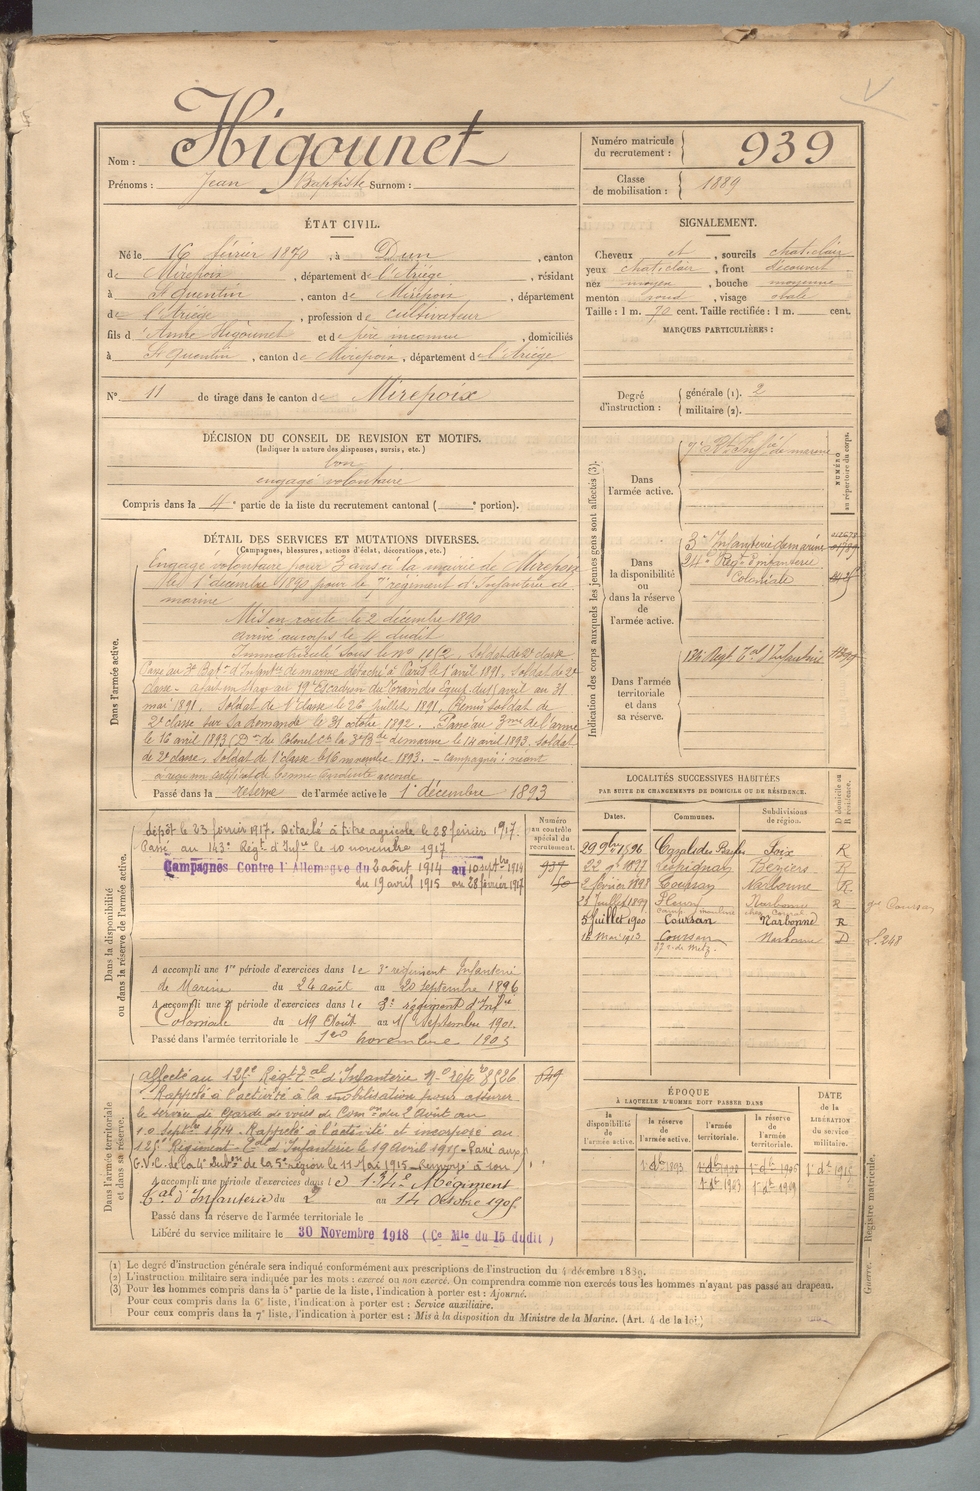 Nom : Higounet
Prénoms : Jean Baptiste Surnom :
Numéro matricule du recrutement : 939
Classe de mobilisation : 1889
ÉTAT CIVIL.
Né le 16 février 1870, à Dun, canton
de Mirepoix, département de l'Ariège, résidant
à St Quentin, canton de Mirepoix, département
de l'Ariège, profession de cultivateur
fils d'Anne Higounet et de père inconnu, domiciliés
à St Quentin, canton de Mirepoix, département de l'Ariège
N° 11 de tirage dans le canton de Mirepoix
SIGNALEMENT.
Cheveux et, sourcils chat. clair
yeux chat. clair, front découvert
nez moyen, bouche moyenne
menton rond, visage ovale
Taille : 1 m. 70 cent. Taille rectifiée : 1 m. cent.
MARQUES PARTICULIÈRES :
Degré d'instruction : générale (1). 2
militaire (2).
DÉCISION DU CONSEIL DE REVISION ET MOTIFS.
(Indiquer la nature des dispenses, sursis, etc.)
bon
engagé volontaire
Compris dans la 4e partie de la liste du recrutement cantonal ( e portion).
DÉTAIL DES SERVICES ET MUTATIONS DIVERSES.
(Campagnes, blessures, actions d'éclat, décorations, etc.)
Dans l'armée active.
Engagé volontaire pour 3 ans à la mairie de Mirepoix
le 1er décembre 1890 pour le 7e régiment d'Infanterie de
marine
Mis en route le 2 décembre 1890
arrivé au corps le 4 dudit
Immatriculé sous le no Soldat de 2e classe
Passé au 3e Rgt d'Infanterie de marine détaché à Paris le 1 avril 1891. Soldat de 2e
classe - a fait un stage au 19e Escadron du Train des Equip. du 1 avril au 31
mai 1891. Soldat de 1e classe le 26 juillet 1891. Remis soldat de
2e classe sur sa demande le 31 octobre 1892. Passé au 3me de l'arme
le 16 avril 1893 (Don du Colonel Ct la 3e Bde de marine le 14 avril 1893. Soldat
de 2e classe. Soldat de 1e classe le 16 novembre 1893. - Campagnes : néant
a reçu un certificat de bonne conduite accordé
Passé dans la réserve de l'armée active le 1er décembre 1893
Indication des corps auxquels les jeunes gens sont affectés (3).
NUMÉRO au répertoire du corps.
Dans l'armée active.
7e Rt Infie de marine
Dans la disponibilité ou dans la réserve de l'armée active.
3e Infanterie de marine
24e Régt d'Infanterie
Coloniale
Dans l'armée territoriale et dans sa réserve.
Régt Tal d'Infanterie
LOCALITÉS SUCCESSIVES HABITÉES
PAR SUITE DE CHANGEMENTS DE DOMICILE OU DE RÉSIDENCE.
Dates. Communes. Subdivisions de région. D domicile ou R résidence.
29 9bre 1896 Foix R
22 9e 1897 Lespignan Béziers R
2 février 1898 Coursan Narbonne R
28 Juillet 1899 Fleury Narbonne R
5 Juillet 1900 Coursan Narbonne R
16 Mai 1913 Coursan Narbonne D
37 r. de Metz
L. 248
Dans la disponibilité ou dans la réserve de l'armée active.
Numéro au contrôle spécial du recrutement.
dépôt le 23 février 1917. Détaché à titre agricole le 28 février 1917.
Passé au 143e Régt d'Infie le 10 novembre 1917
Campagnes Contre l'Allemagne du 2 août 1914 au 10 Septbre 1914
du 19 avril 1915 au 28 février 1917
937
A accompli une 1re période d'exercices dans le 3e régiment Infanterie
de Marine du 24 août au 20 septembre 1896
A accompli une 2e période d'exercices dans le régiment d'Infie
Coloniale du 19 Août au 15 Septembre 1901.
Passé dans l'armée territoriale le 1er novembre 1903
Dans l'armée territoriale et dans sa réserve.
affecté au Régt Tal d'Infanterie No rép
Rappelé à l'activité à la mobilisation pour assurer
le service de Garde de voies de Com du 2 Août au
10 Septbre 1914 - Rappelé à l'activité et incorporé au
Régiment Tal d'Infanterie le 19 Avril 1915 - Passé aux
G.V.C. de la 4e Subon de la 5e région le 11 Mai 1915 - Renvoyé à son
A accompli une période d'exercices dans le 134e Régiment
Tal d'Infanterie du 2 au 14 Octobre 1905
Passé dans la réserve de l'armée territoriale le
Libéré du service militaire le 30 Novembre 1918 (Ce Mle du 15 dudit)
ÉPOQUE
À LAQUELLE L'HOMME DOIT PASSER DANS
la disponibilité de l'armée active. la réserve de l'armée active. l'armée territoriale. la réserve de l'armée territoriale.
DATE de la LIBÉRATION du service militaire.
1er dbre 1893
1er dbre 1903 1er dbre 1909
Guerre. — Registre matricule.
(1) Le degré d'instruction générale sera indiqué conformément aux prescriptions de l'instruction du 4 décembre 1889.
(2) L'instruction militaire sera indiquée par les mots : exercé ou non exercé. On comprendra comme non exercés tous les hommes n'ayant pas passé au drapeau.
(3) Pour les hommes compris dans la 5e partie de la liste, l'indication à porter est : Ajourné.
Pour ceux compris dans la 6e liste, l'indication à porter est : Service auxiliaire.
Pour ceux compris dans la 7e liste, l'indication à porter est : Mis à la disposition du Ministre de la Marine. (Art. 4 de la loi.)